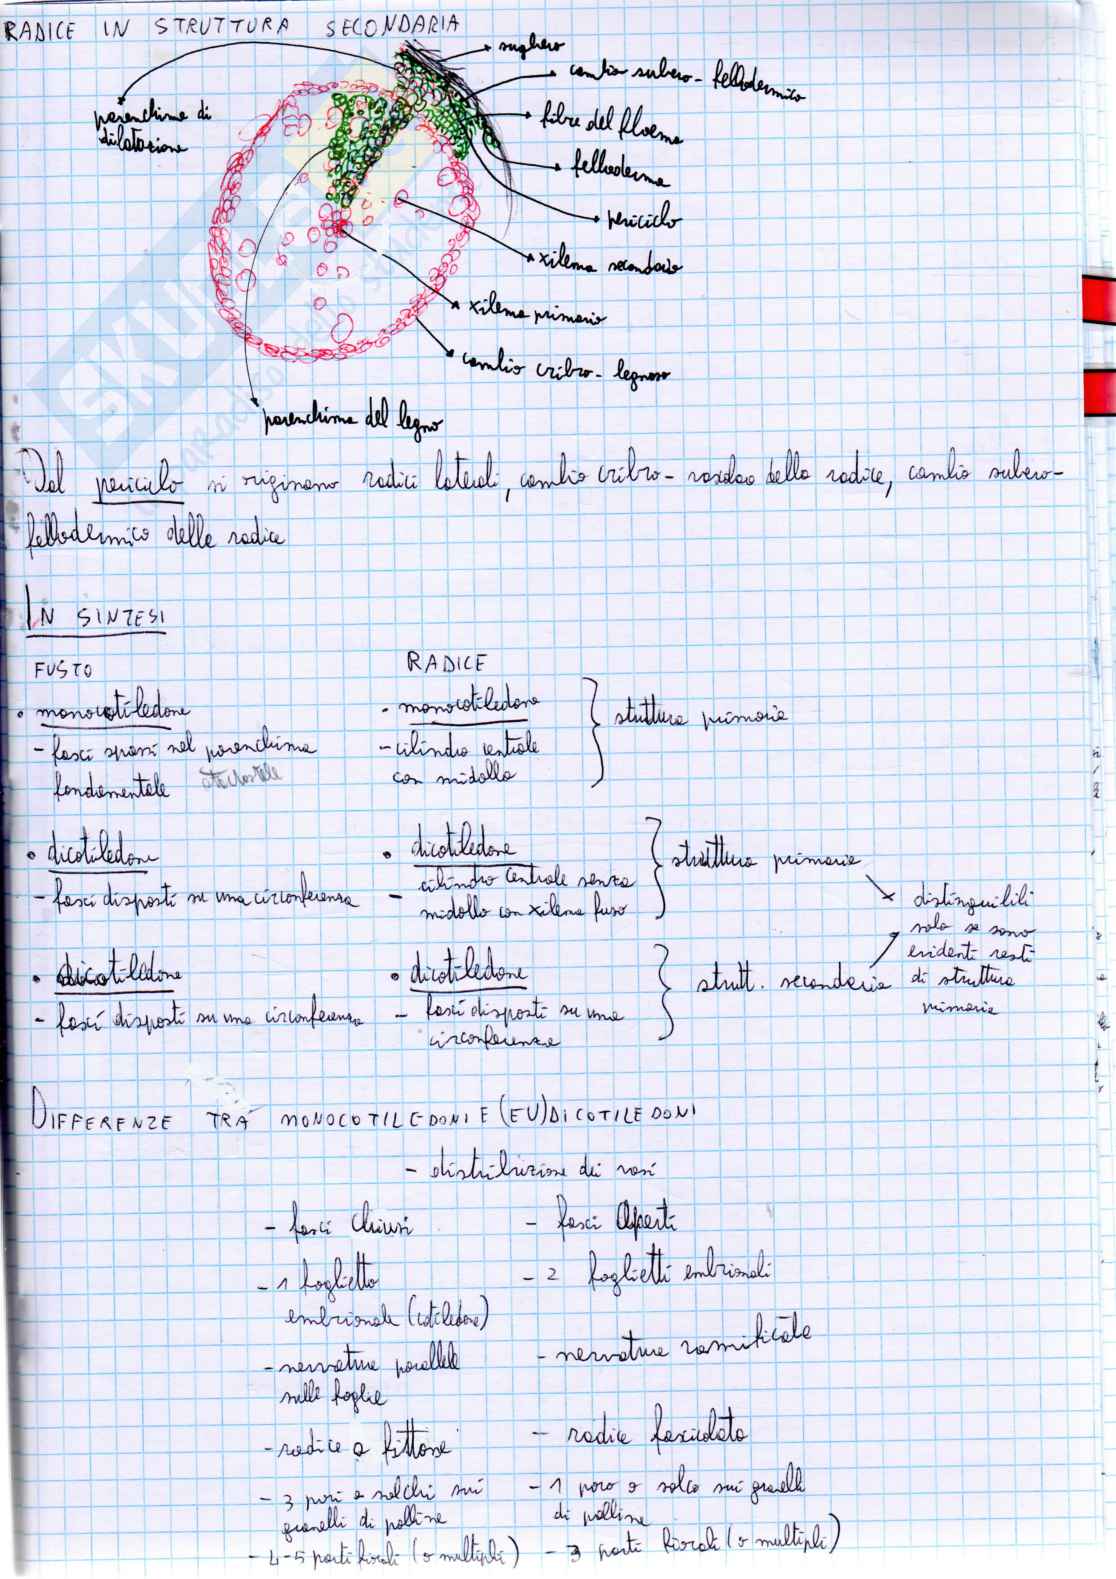 RADICE IN STRUTTURA SECONDARIA
sughero
cambio subero-fellodermico
parenchima di
dilatazione
fibre del floema
felloderma
periciclo
xilema secondario
xilema primario
cambio cribro-legnoso
parenchima del legno
Dal periciclo si originano radici laterali, cambio cribro-vascolare della radice, cambio subero-
fellodermico della radice
IN SINTESI
FUSTO RADICE
• monocotiledone • monocotiledone struttura primaria
- fasci sparsi nel parenchima - cilindro centrale
fondamentale con midollo
• dicotiledone • dicotiledone struttura primaria
- fasci disposti su una circonferenza - cilindro centrale senza
midollo con xilema fuso
distinguibili
solo se sono
evidenti resti
di struttura
primaria
• dicotiledone • dicotiledone strutt. secondaria
- fasci disposti su una circonferenza - fasci disposti su una
circonferenza
DIFFERENZE TRA MONOCOTILEDONI E (EU)DICOTILEDONI
- distribuzione dei vasi
- fasci chiusi - fasci aperti
- 1 foglietto - 2 foglietti embrionali
embrionale (cotiledone)
- nervature parallele - nervature ramificate
sulle foglie
- radice a fittone - radice fascicolata
- 3 pori o solchi sui - 1 poro o solco sui granelli
granelli di polline di polline
- 4-5 parti fiorali (o multipli) - 3 parti fiorali (o multipli)